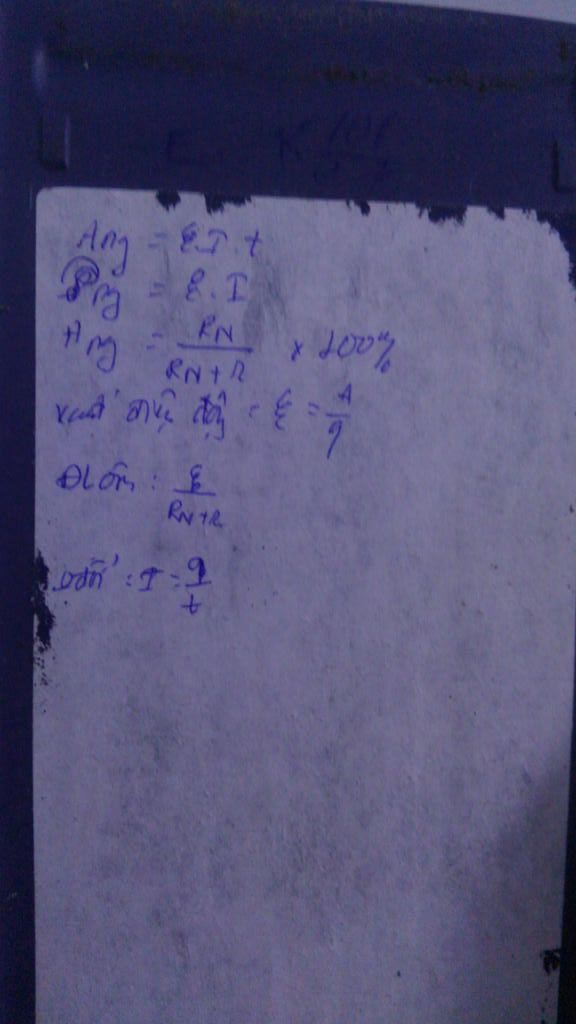 Ang = ξ.I.t
Png = ξ.I
Hng = RN / (RN + R) x 100%
xuất điện động = ξ = A / q
Đl ôm: ξ / (RN + R)
: I = q / t